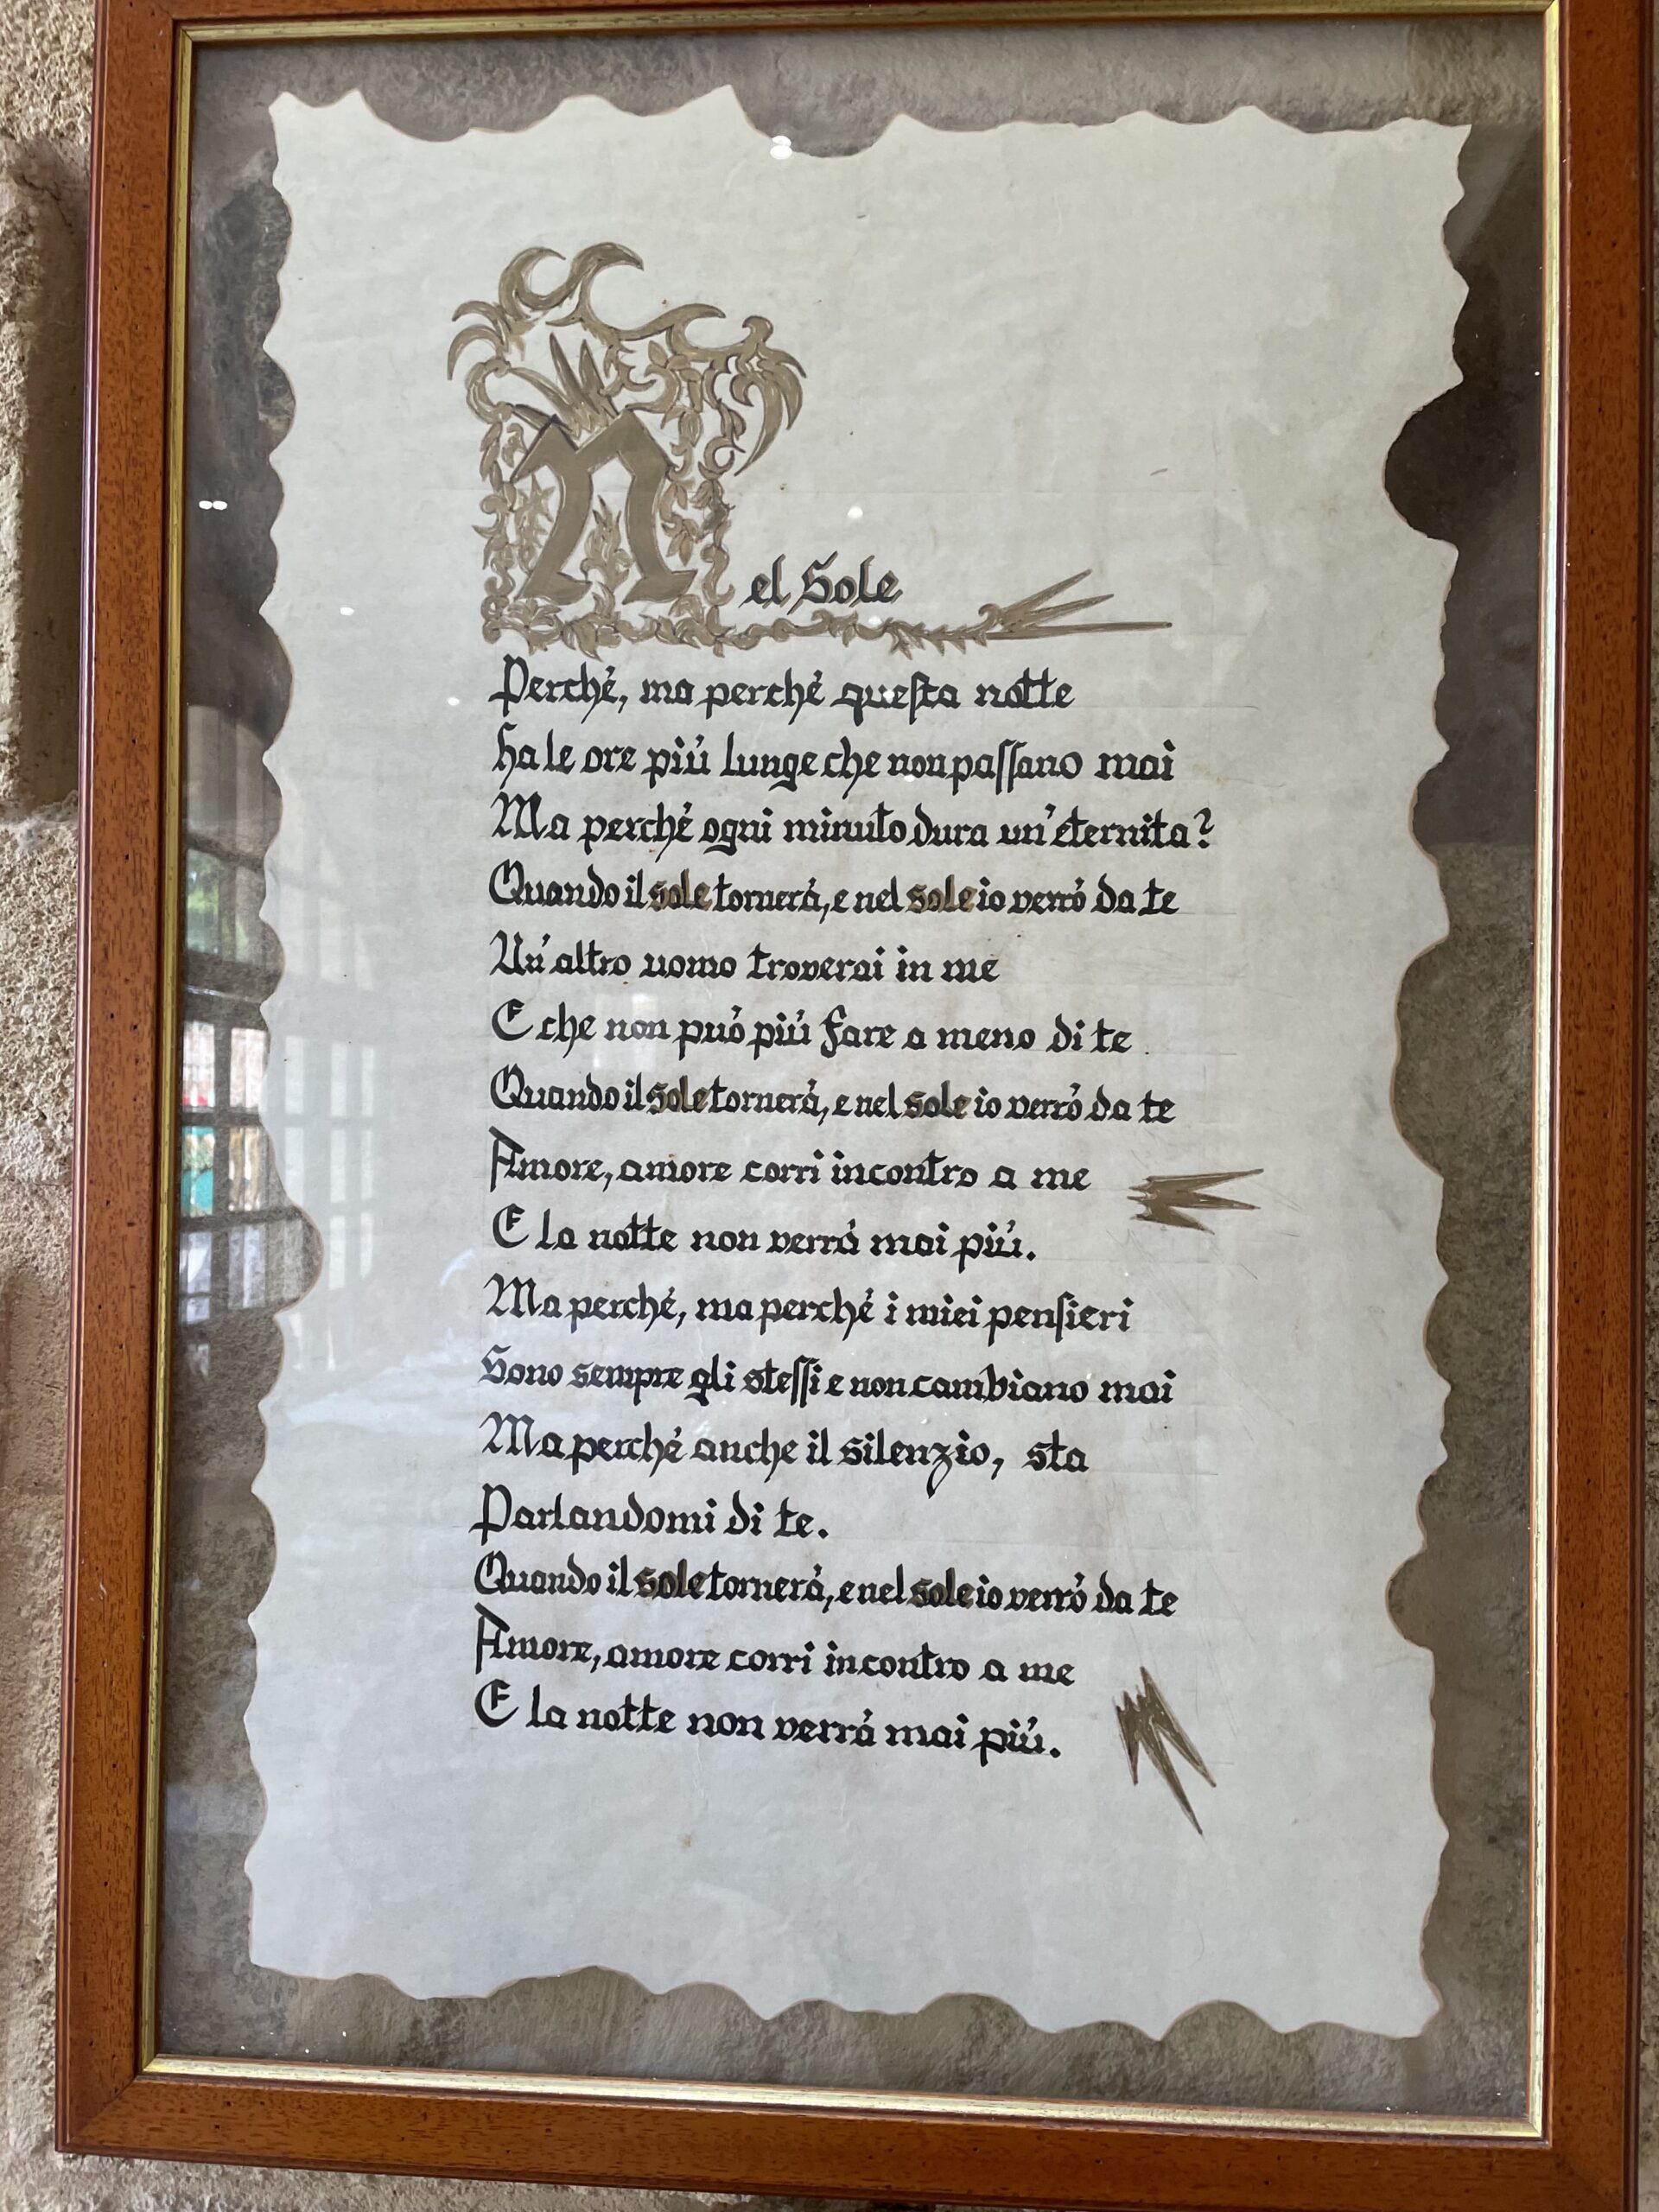 Nel Sole
Perché, ma perché questa notte
ha le ore più lunge che non passano mai
Ma perché ogni minuto dura un'eternita?
Quando il sole tornerà, e nel sole io verrò da te
Un'altro uomo troverai in me
E che non può più fare a meno di te
Quando il sole tornerà, e nel sole io verrò da te
Amore, amore corri incontro a me
E la notte non verrà mai più.
Ma perché, ma perché i miei pensieri
Sono sempre gli stessi e non cambiano mai
Ma perché anche il silenzio, sta
Parlandomi di te.
Quando il sole tornerà, e nel sole io verrò da te
Amore, amore corri incontro a me
E la notte non verrà mai più.